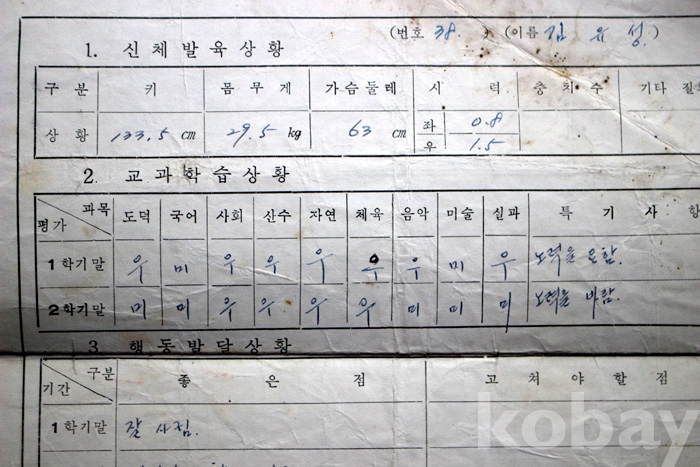 (번호 38. ) (이름 김 유 성.)
1. 신체발육상황
구 분 키 몸 무 게 가슴둘레 시 력 충 치 수 기타 질
상 황 133.5 cm 29.5 kg 63 cm 좌 0.8
우 1.5
2. 교과학습상황
과목 평가 도덕 국어 사회 산수 자연 체육 음악 미술 실과 특 기 사 항
1학기말 우 미 우 우 우 우 우 미 우 노력을 요함.
2학기말 미 미 우 우 우 우 미 미 미 노력을 바람.
3. 행동발달상황
구분 기간 좋 은 점 고 쳐 야 할 점
1학기말 잘 사귐.
kobay